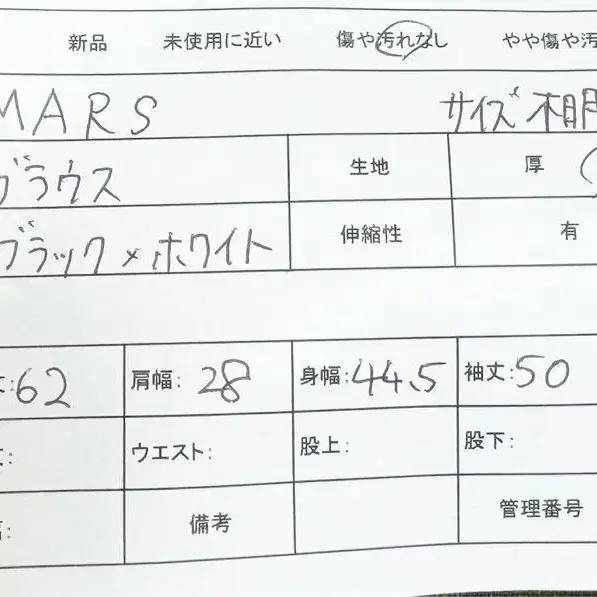 新品 未使用に近い 傷や汚れなし やや傷や汚
MARS サイズ 相
ブラウス 生地 厚
ブラック×ホワイト 伸縮性 有
:62 肩幅: 28 身幅:44.5 袖丈:50
: ウエスト: 股上: 股下:
: 備考 管理番号